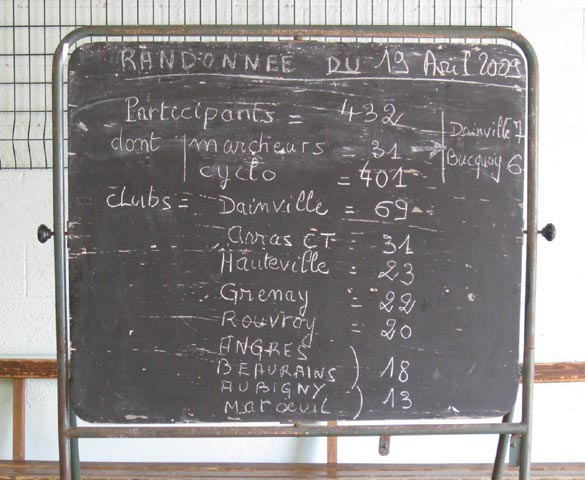 RANDONNEE DU 19 Avril 2009
Participants = 432
dont marcheurs = 31
cyclo = 401
Dainville 7
Bucquoy 6
clubs = Dainville = 69
Arras CT = 31
Hauteville = 23
Grenay = 22
Rouvroy = 20
ANGRES
BEAURAINS ) 18
AUBIGNY
Maroeuil ) 13